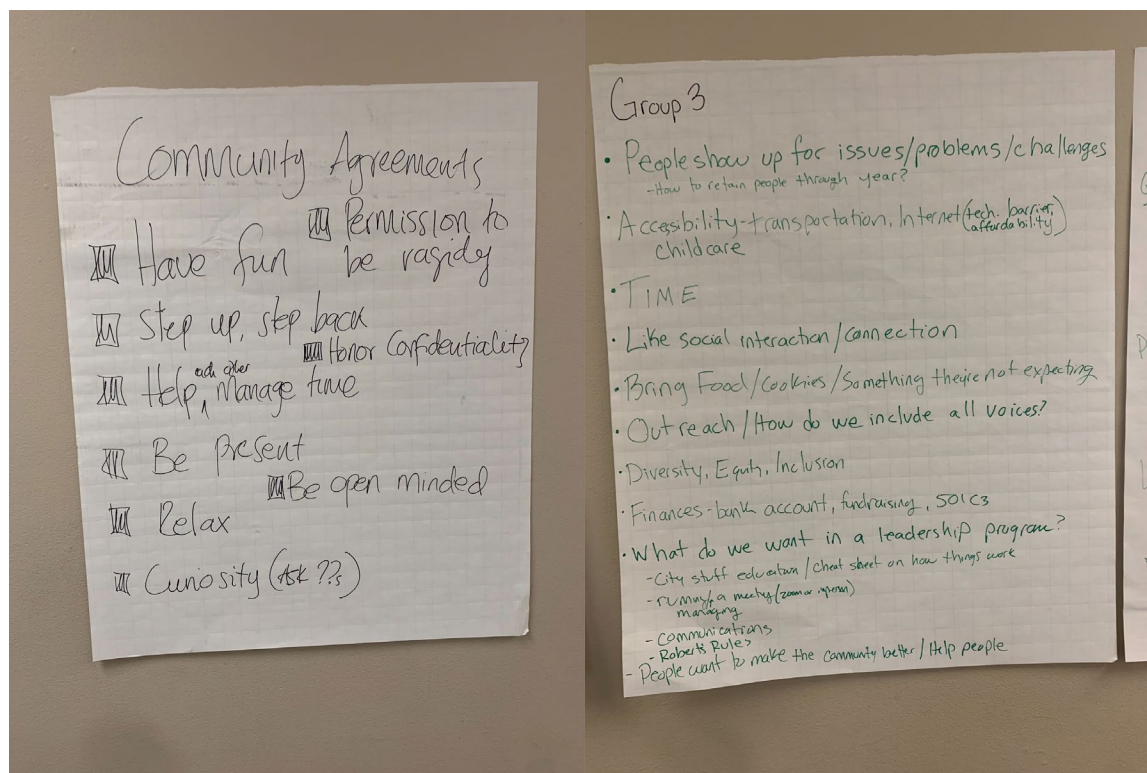 Community Agreements
Permission to
be ragidy
Have fun
Step up, step back
Honor Confidentiality
each other
Help, Manage time
Be present
Be open minded
Relax
Curiosity (Ask ??s)
Group 3
• People show up for issues/problems/challenges
- How to retain people through year?
• Accessibility - transportation, Internet (tech. barrier,
affordability)
childcare
• TIME
• Like social interaction/connection
• Bring Food/Cookies/Something they're not expecting
• Outreach/How do we include all voices?
• Diversity, Equity, Inclusion
• Finances - bank account, fundraising, 501C3
• What do we want in a leadership program?
- City stuff education/cheat sheet on how things work
- running/a meeting (zoom or inperson)
managing
- Communications
- Robert's Rules
- People want to make the community better/Help people